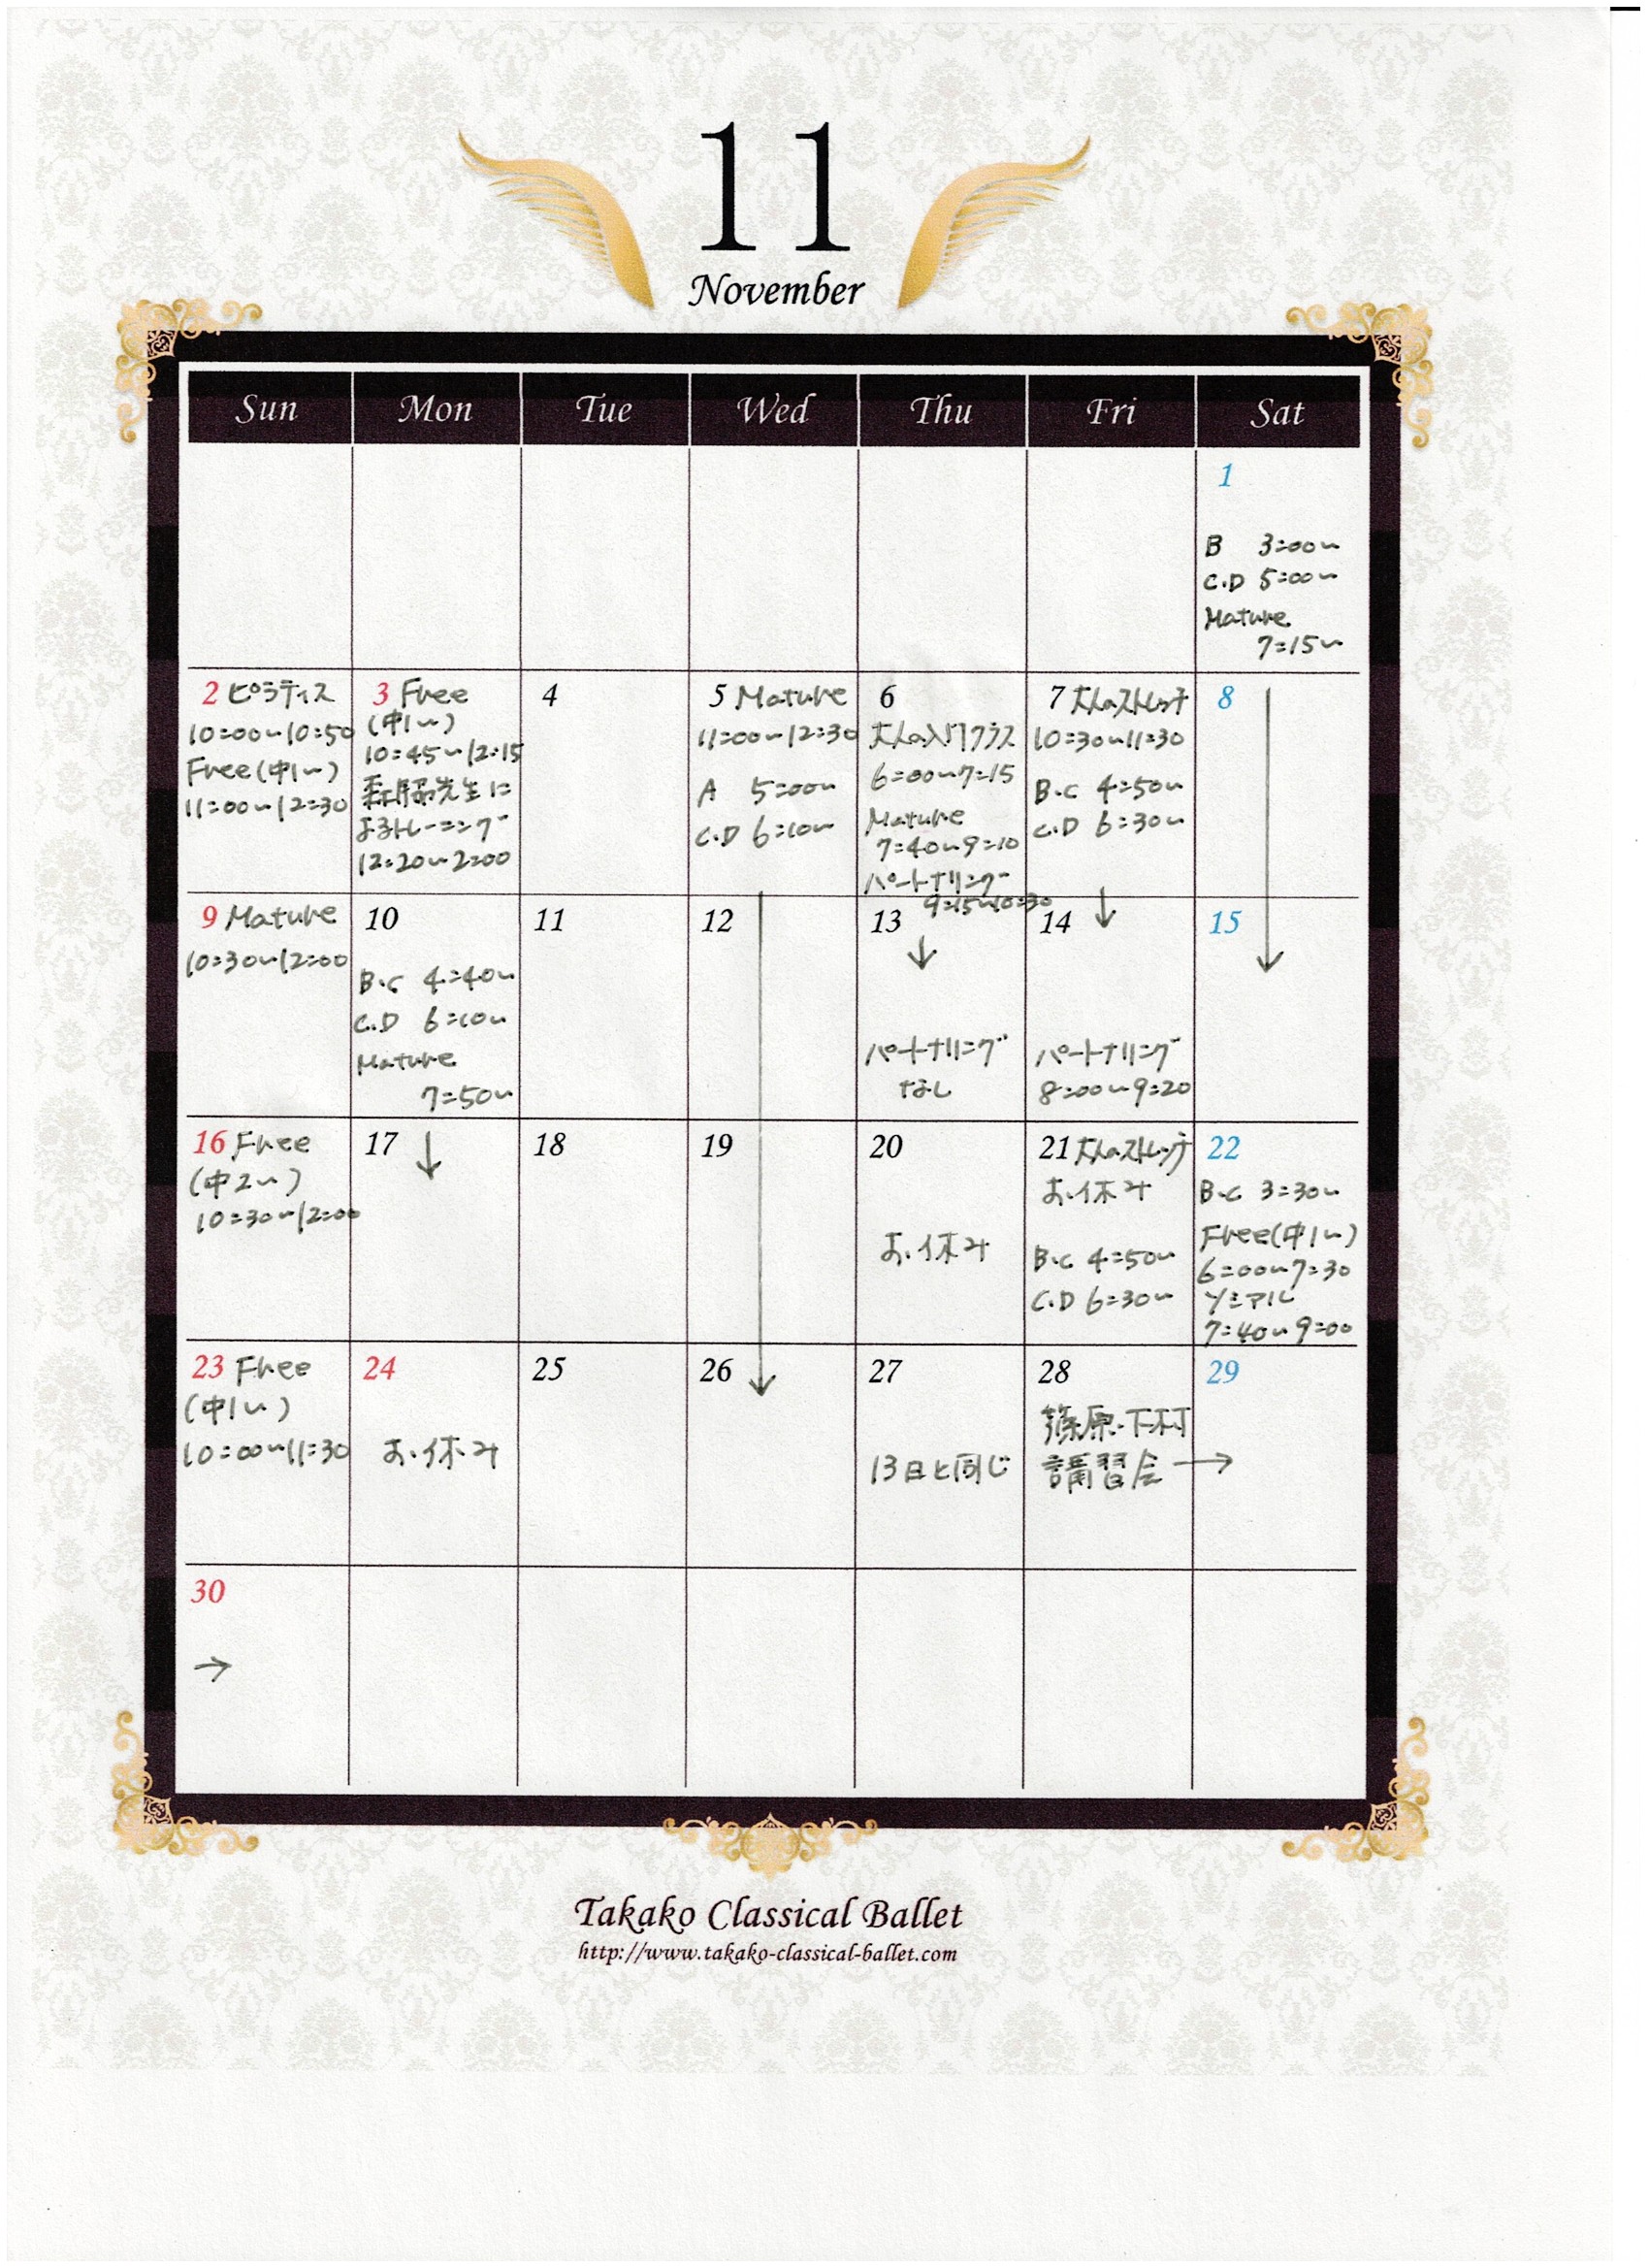 11
November
Sun Mon Tue Wed Thu Fri Sat
1
B 3:00〜
C.D 5:00〜
Mature
7:15〜
2 ピラティス
10:00〜10:50
Free(中1〜)
11:00〜12:30
3 Free
(中1〜)
10:45〜12:15
先生に
よるトレーニング
12:20〜2:00
4
5 Mature
11:00〜12:30
A 5:00〜
C.D 6:10〜
6
大人の入門クラス
6:00〜7:15
Mature
7:40〜9:10
パートナリング
9:15〜10:30
7 大人のストレッチ
10:30〜11:30
B.C 4:50〜
C.D 6:30〜
8
9 Mature
10:30〜12:00
10
B.C 4:40〜
C.D 6:10〜
Mature
7:50〜
11
12
13 ↓
パートナリング
なし
14 ↓
パートナリング
8:00〜9:20
15
16 Free
(中2〜)
10:30〜12:00
17 ↓
18
19
20
お休み
21 大人のストレッチ
お休み
B.C 4:50〜
C.D 6:30〜
22
B.C 3:30〜
Free(中1〜)
6:00〜7:30
ソシアル
7:40〜9:00
23 Free
(中1〜)
10:00〜11:30
24
お休み
25
26
27
13日と同じ
28
篠原・下村
講習会 →
29
30
→
Takako Classical Ballet
http://www.takako-classical-ballet.com